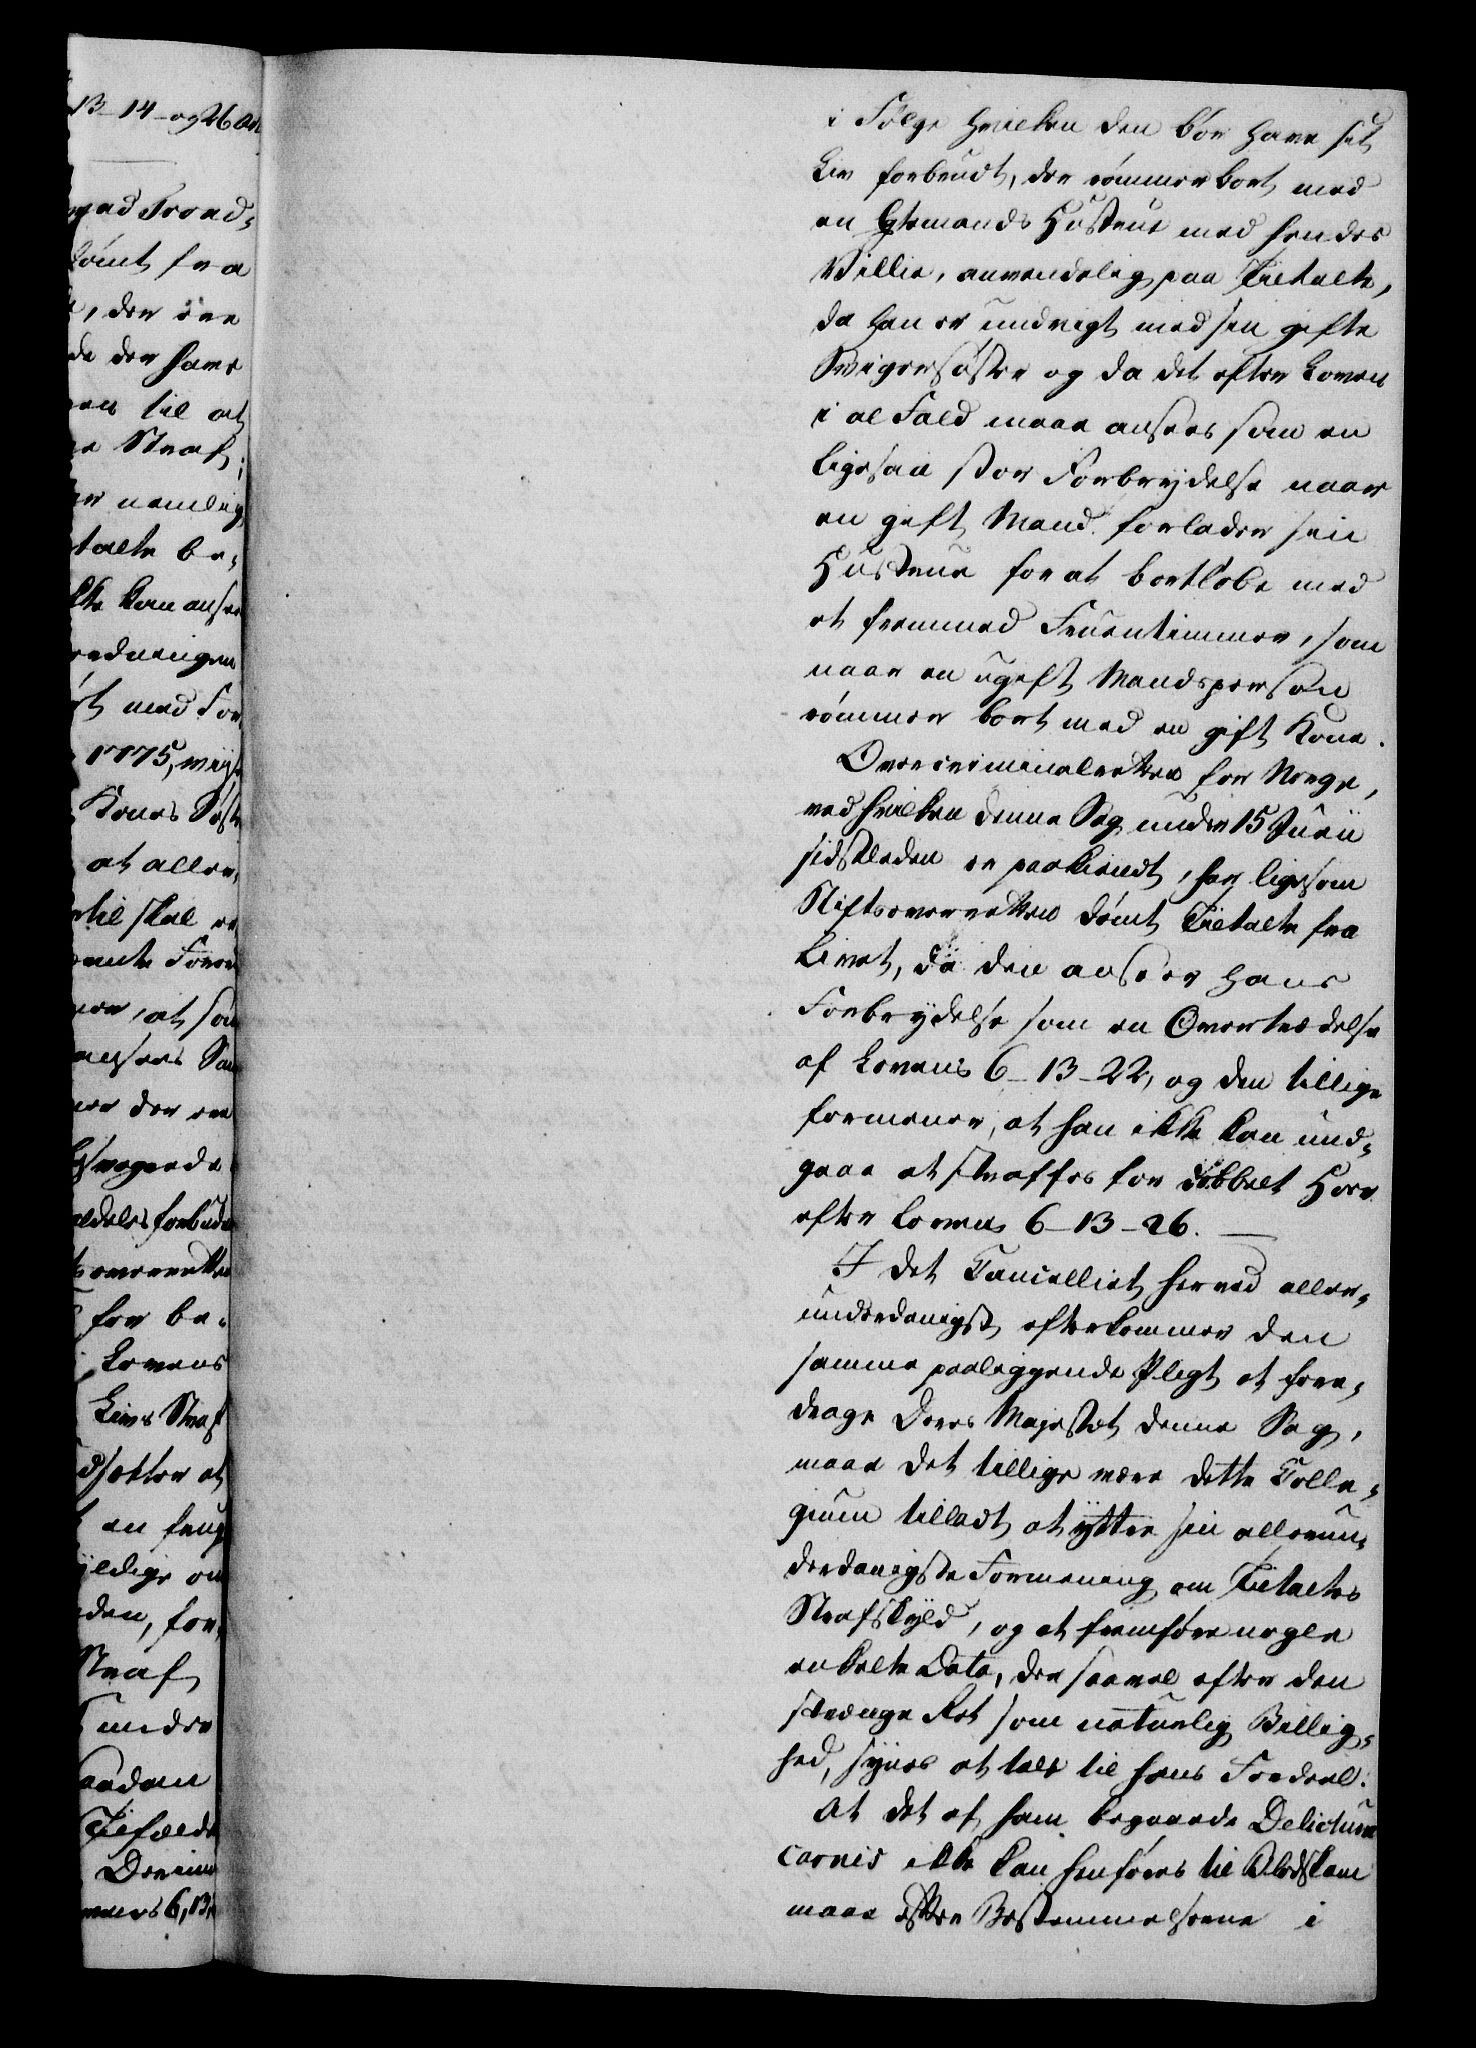 13-14- og 26 Art
med Trond,
dömt fra
, der
de der have
til at
Straf;
er nemlig
talte be,
ikke kan ansee
redningen
st med For
1775,
Kones Søst
at aller,
til skal
Foror
, at som
ansees
der
besvogrede
aldeles forbudn
overretten
for be,
Lovens
Livs Straf
dsætter at
en
yldige om
den, for,
Straf
under
aadan
Tilfælde
6, 13,
i Følge hvilken den bør have sit
Liv forbrudt, der römmer bort med
en Ægtemands Hustrue med hendes
Villie, anvendelig paa Tiltalte,
da han er undvigt med sin gifte
Svigersøster og da det efter Loven
i al Fald maae ansees som en
ligesaa stor Forbrydelse naar
en gift Mand forlader sin
Hustrue for at bortløbe med
et fremmed Fruentimmer, som
naar en ugift Mandsperson
römmer bort med en gift Kone.
Overcriminalretten for Norge,
ved hvilken denne Sag under 15 Junii
sidstleden er paakiendt, har ligesom
Stiftsoverretten dömt Tiltalte fra
Livet, da den anseer hans
Forbrydelse som en Overtrædelse
af Lovens 6-13-22, og den tillige
formener, at han ikke kan und,
gaae at straffes for dobbelt Hoer
efter Lovens 6-13-26.
I det Cancelliet herved aller,
underdanigst efterkommer den
samme paaliggende Pligt at fore,
drage Deres Majestæt denne Sag,
maae det tillige være dette Colle,
gium tilladt at yttre sin allerun,
derdanigste Formening om Tiltaltes
Strafskyld, og at fremføre nogle
enkelte Data, der saavel efter den
strænge Ret som naturlig Billig,
hed, synes at tale til hans Fordeel.
At det af ham begaaede Delictum
carnis ikke kan henføres til Blodskam
maae efter Bestemmelserne i